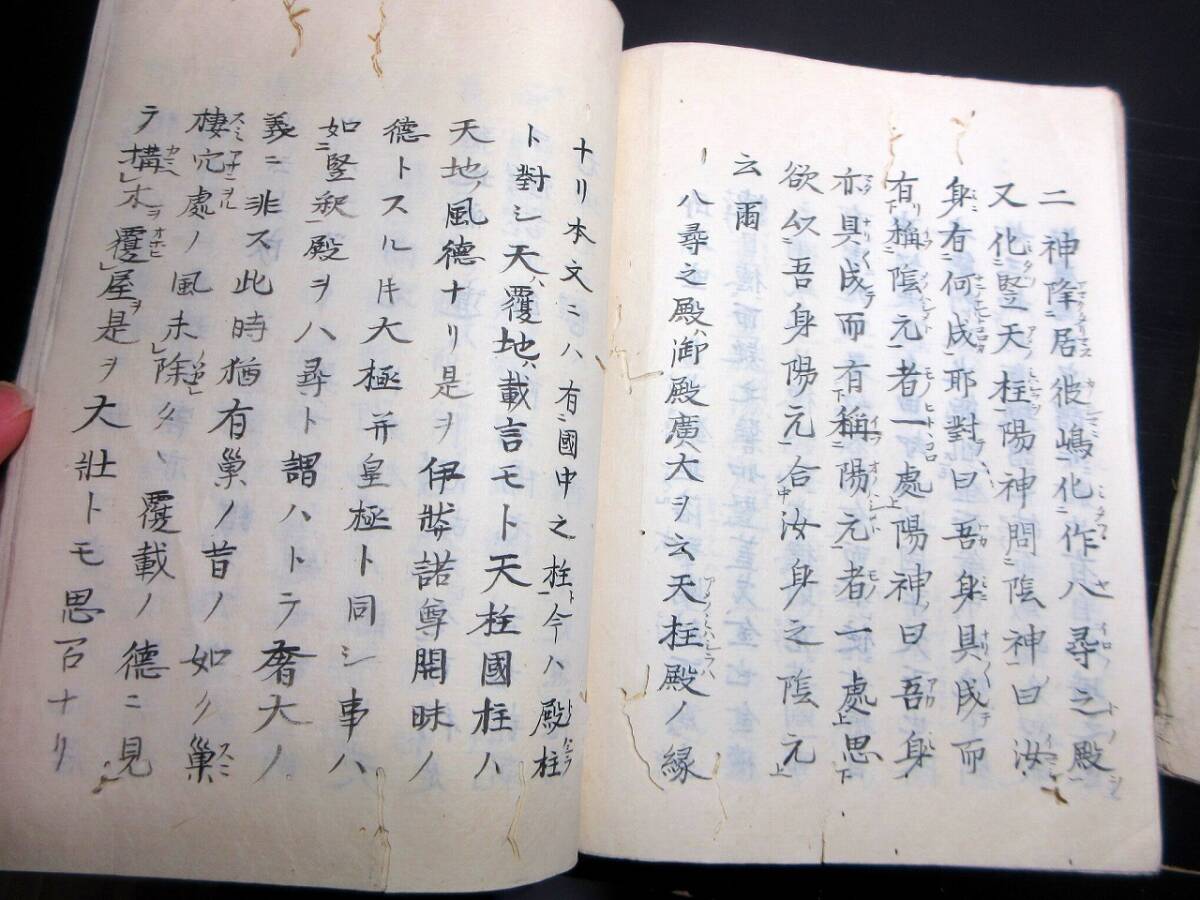 二神降居彼嶋化作八尋之殿
又化竪天柱陽神問陰神曰汝
身有何成耶對曰吾身具成而
有稱陰元者一處陽神曰吾身
亦具成而有稱陽元者一處思
欲以吾身陽元合汝身之陰元
云爾
一八尋之殿ハ御殿廣大ヲ云天柱殿ノ縁
ナリ本文ニハ有國中之柱今ハ殿柱
ト對シ天ハ覆地ハ載言モト天柱國柱ハ
天地ノ風德ナリ是ヲ伊弉諾尊開昧ノ
德トスル大極并皇極ト同シ事ハ
如竪釈殿ヲ八尋ト謂ハトテ奢大ノ
義ニ非ス此時猶有巣ノ昔ノ如ク巣
棲穴處ノ風未除ク覆載ノ德ニ見
テ構木ヲ覆屋ヲ是ヲ大壯トモ思召ナリ